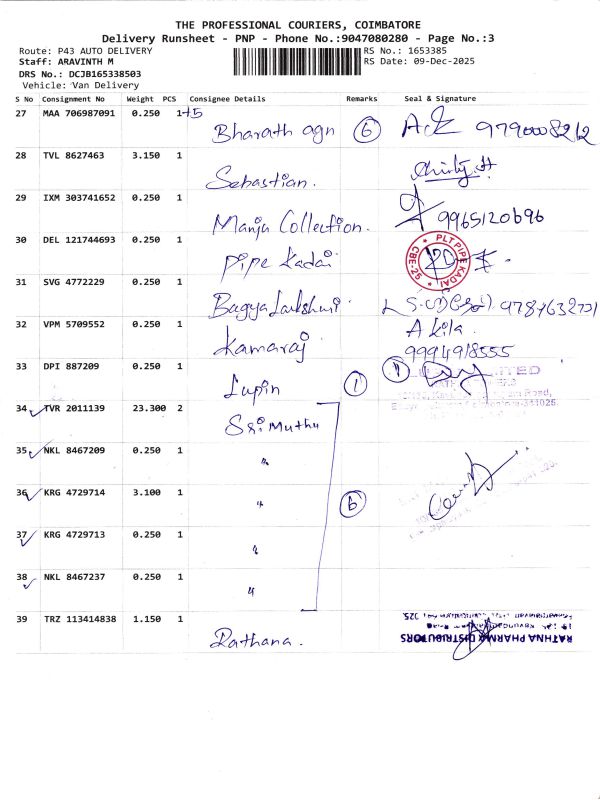 THE PROFESSIONAL COURIERS, COIMBATORE
Delivery Runsheet - PNP - Phone No.:9047080280 - Page No.:3
Route: P43 AUTO DELIVERY RS No.: 1653385
Staff: ARAVINTH M RS Date: 09-Dec-2025
DRS No.: DCJB165338503
Vehicle: Van Delivery
S No Consignment No Weight PCS Consignee Details Remarks Seal & Signature
27 MAA 706987091 0.250 1+5 Bharath agn 6 9790008212
28 TVL 8627463 3.150 1 Sebastian.
29 IXM 303741652 0.250 1 Manja Collection. 9965120696
30 DEL 121744693 0.250 1 Pipe Kadai PLT PIPE KADAI CBE-25
31 SVG 4772229 0.250 1 Bagya Lakshmi
32 VPM 5709552 0.250 1 Kamaraj Akila. 9994918555
33 DPI 887209 0.250 1 Lupin 1 1 LIMITED
34 TVR 2011139 23.300 2 Sri Muthu
35 NKL 8467209 0.250 1 "
36 KRG 4729714 3.100 1 " 6
37 KRG 4729713 0.250 1 "
38 NKL 8467237 0.250 1 "
39 TRZ 113414838 1.150 1 Rathana. RATHNA PHARMA DISTRIBUTORS